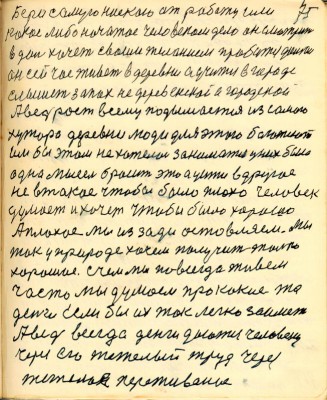 75
Бери самую низкою от работу или
какое либо начатое человеком дело он смотрит
в дал хочет своим желанием пробыти
он сей час живет в деревни а учити в городе
слышет запах не деревенской а городской
А ведь рост всему подымается из самого
хутора деревни люди для этого
им бы этом не хотелось заниматся у них было
одна мысел бросит это а уйти в другое
не в такое чтобы было плохо человек
думает и хочет чтобы было хорошо
А плохое мы из зади оставляем. Мы
так у природе хочем получит
хорошое. Счем мы повсегда живем
часто мы думаем про какие та
денги если бы их так легко заимет
А ведь всегда денги достаю человеку
через его тяжелый труд через
тяжелое переживание